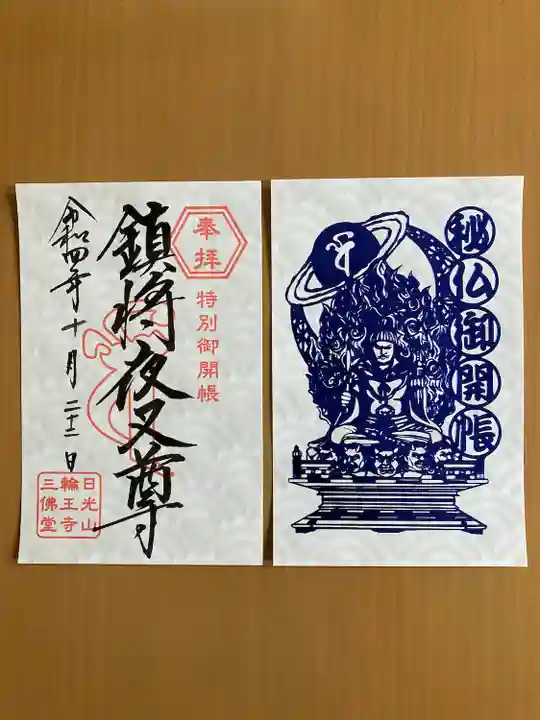 奉拝
特別御開帳
鎮将夜叉尊
令和四年十月二十二日
日光山
輪王寺
三佛堂
秘仏御開帳